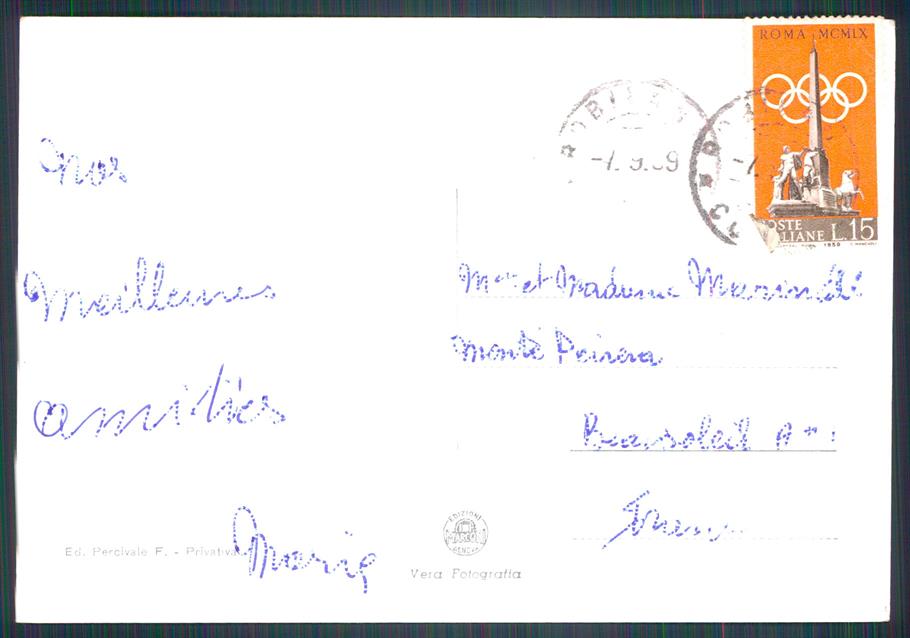 ROMA MCMLX
ROBILA
-7.9.59
-7.
POSTE
ITALIANE L.15
1959
Nos
Meilleures
amitiés
Marie
Mr et Madame
Monté Peirera
Beausoleil A M
France
EDIZIONI
GENOVA
Ed. Percivale F. - Privativa
Vera Fotografia